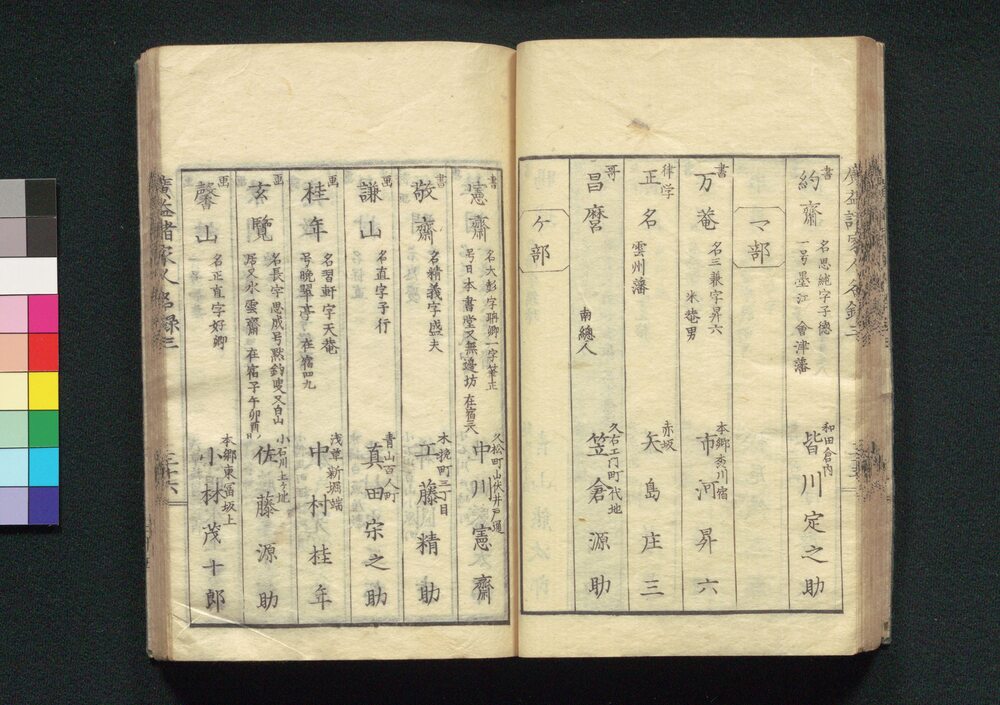 書
約齋
名思純字子德
一号墨江 會津藩
和田倉内
皆川定之助
マ部
書
万菴
名三兼字昇六
米菴男
本郷
市河昇六
律学
正名
雲州藩
赤坂
矢島庄三
哥
昌麿
南總人
久右エ門町代地
笠倉源助
ケ部
書
憲齋
号日本書堂又無邊坊
久松町山伏井戸通
中川憲齋
書
敬齋
名精義字盛夫
木挽町三丁目
工藤精助
画
謙山
名直字子行
青山百人町
真田宗之助
画
桂年
名習軒字天菴
号晩翠亭 在宿四九
浅草新堀端
中村桂年
画
玄覽
名長字思成号黙釣叟又白山
居又水雲齋 在宿子午卯酉
小石川上ケ地
佐藤源助
画
馨山
名正直字好卿
本郷東冨坂上
小林茂十郎
廣益諸家人名録三
三十六